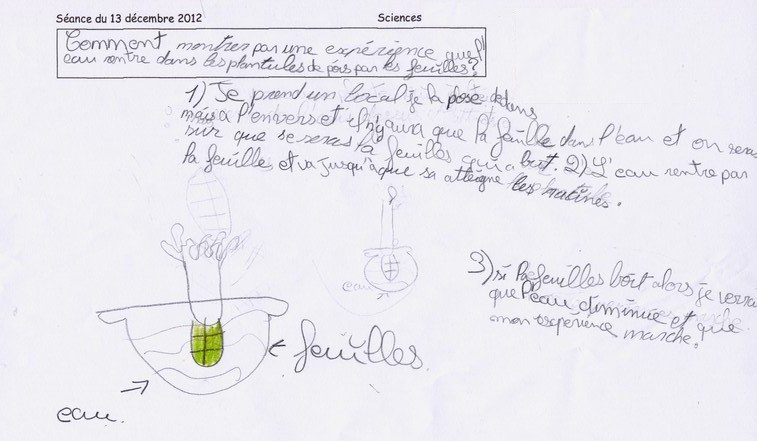 Séance du 13 décembre 2012 Sciences
Comment montrer par une expérience que l'
eau rentre dans les plantules de pois par les feuilles?
1) Je prend un bocal je la pose dedans
mais a l'envers et il n'y aura que la feuille dans l'eau et on seras
sur que se seras la feuilles qui a boit. 2) L'eau rentre par
la feuille et va jusqu'à que sa atteigne les racines.
eau
3) si la feuilles boit alors je verrai
que l'eau diminue et que
mon expérience marche.
feuilles
eau.